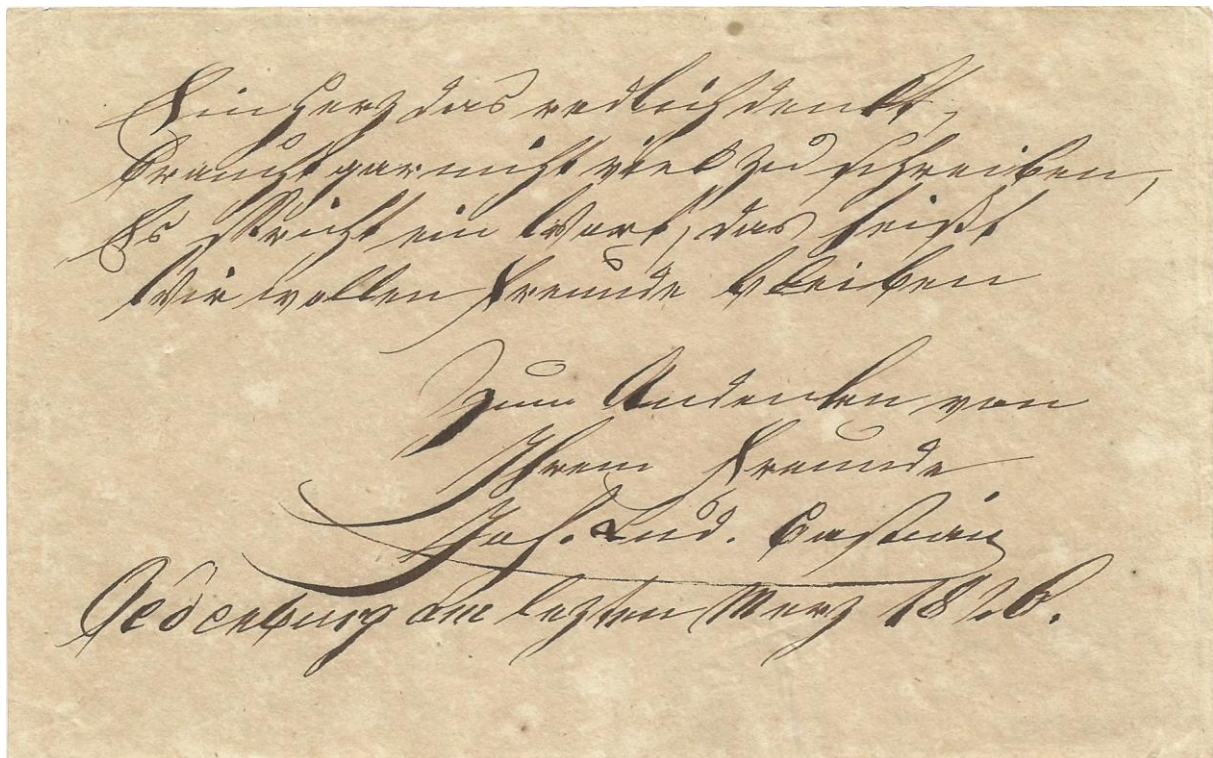 Ein Herz das redlich denkt,
braucht gar nicht viel zu schreiben,
Es spricht ein Wort, das heißt
Wir wollen Freunde bleiben
Zum Andenken von
Ihrem Freunde
Joh. Lud.
Oedenburg am lezten Merz 1826.